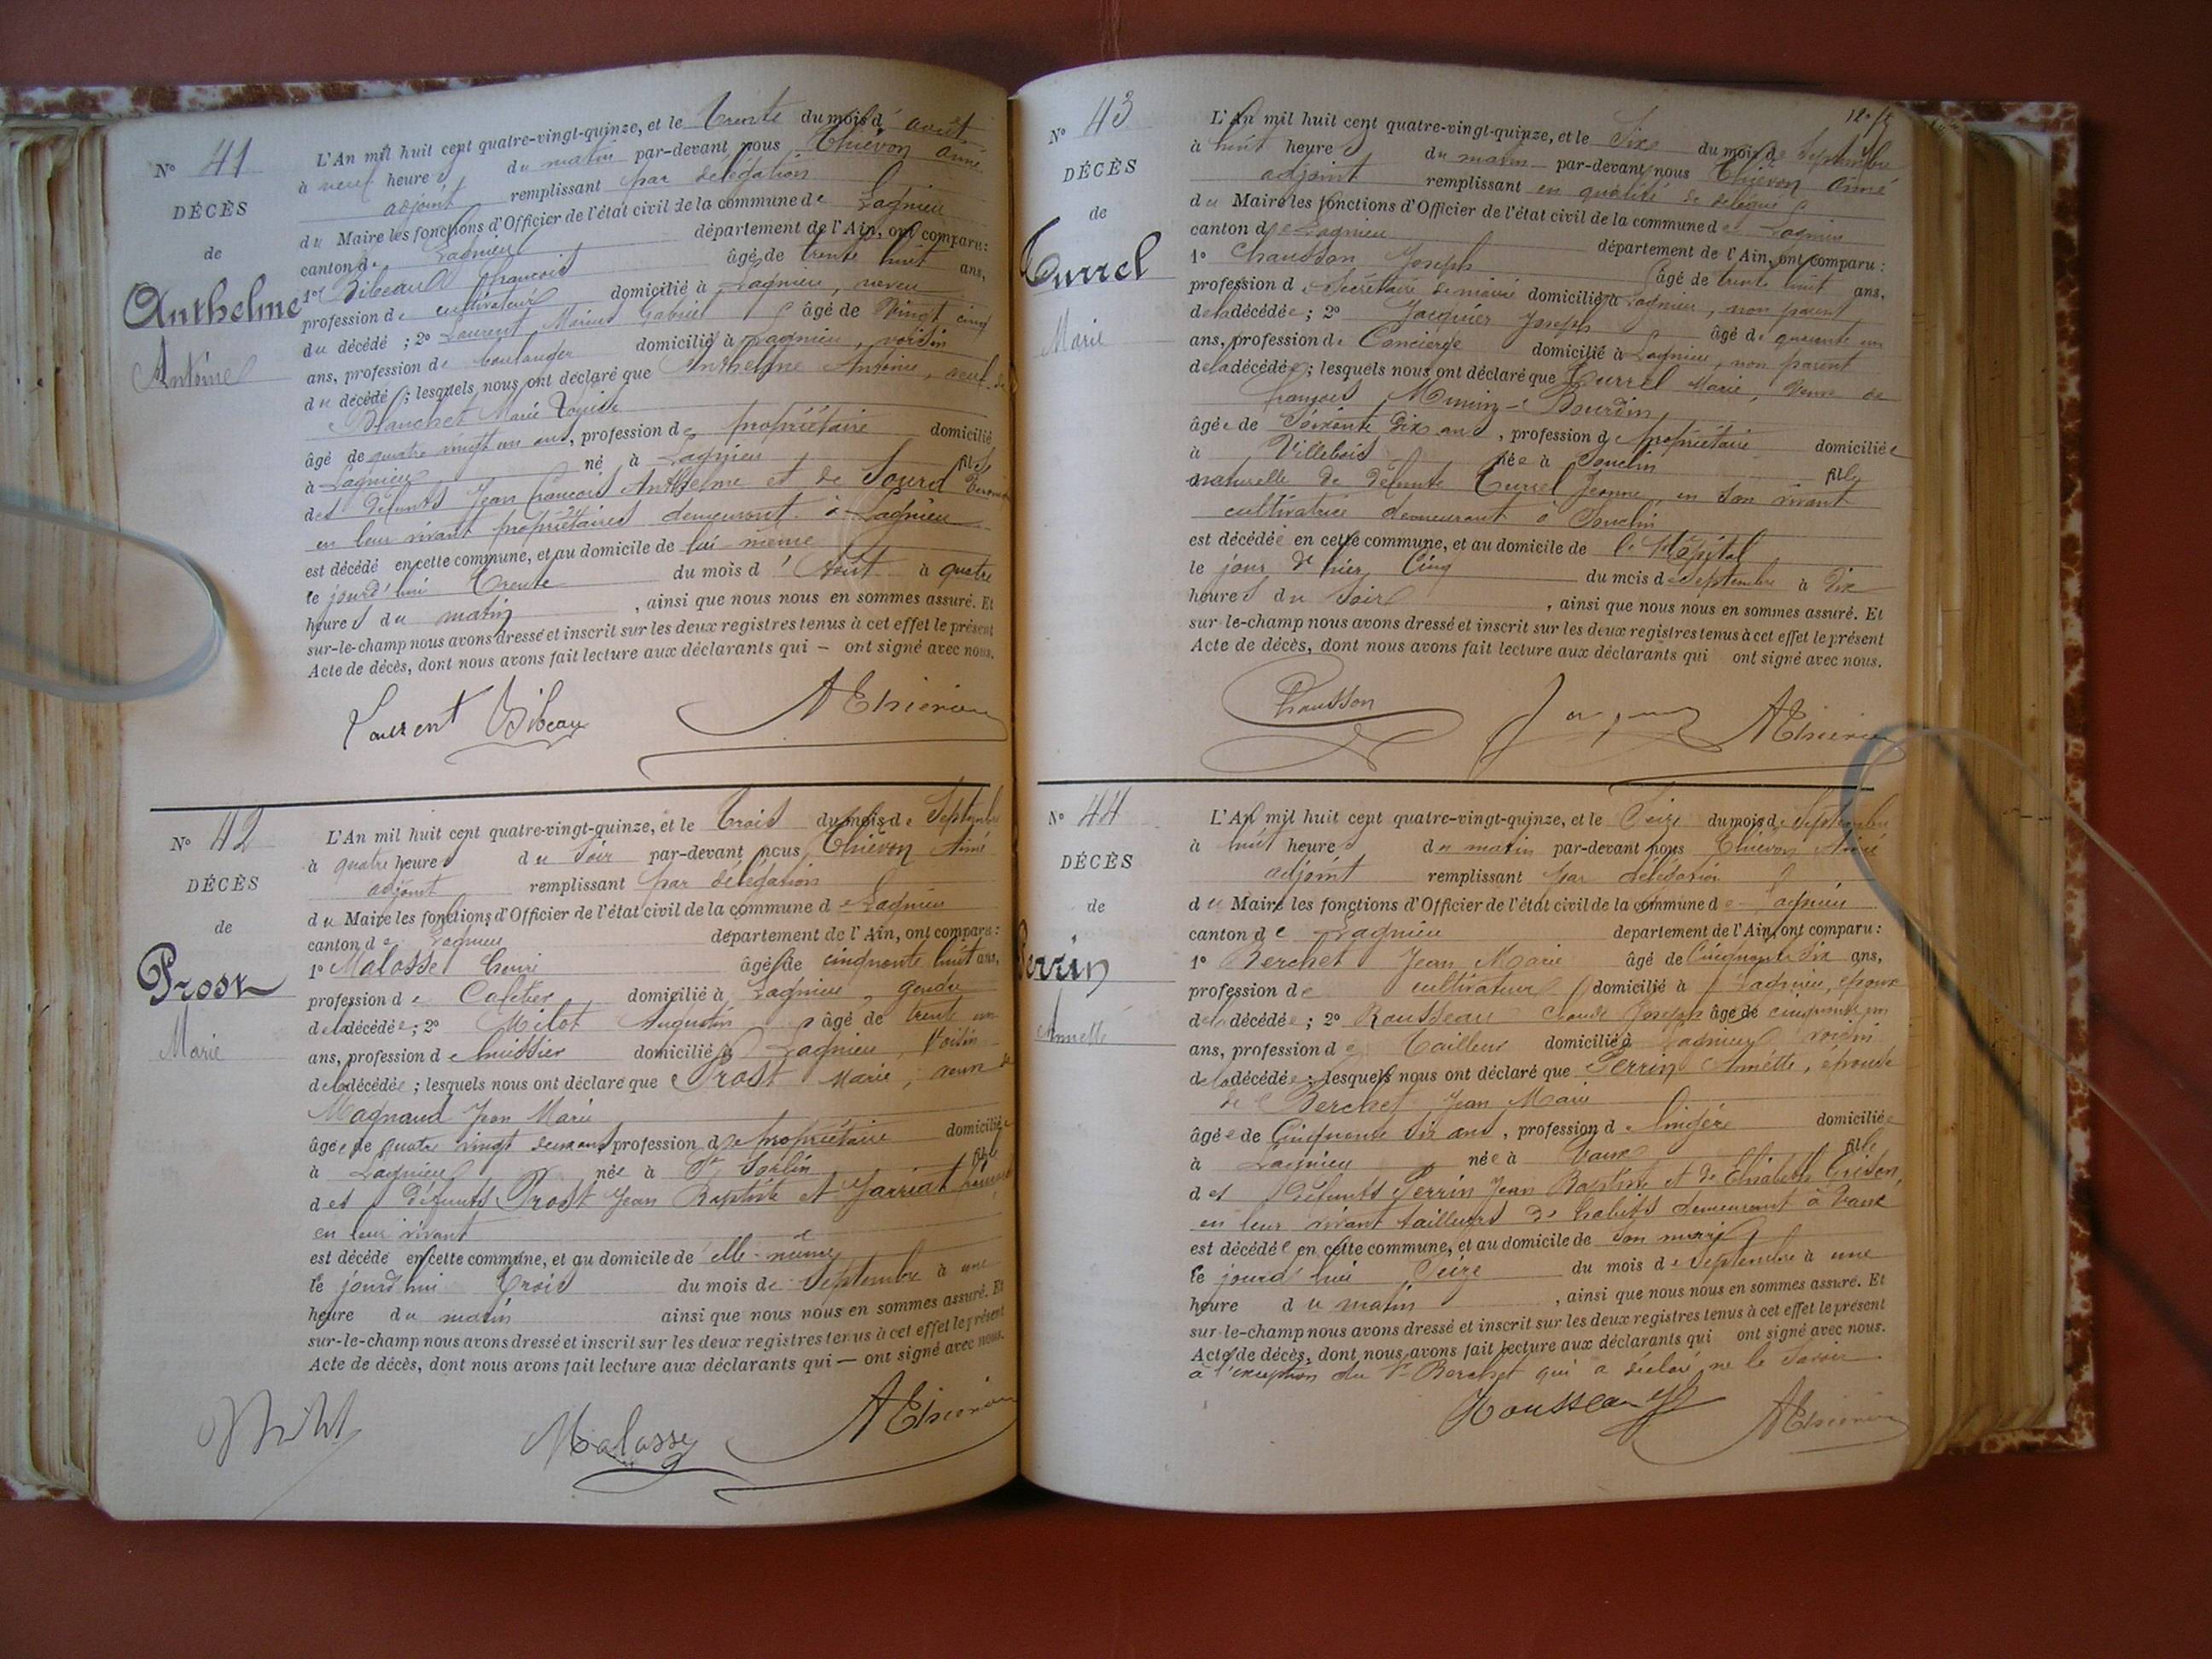 N° 41
DÉCÈS
de
Anthelme
Antoine
L'An mil huit cent quatre-vingt-quinze, et le trente du mois d'août
à neuf heures du matin par-devant nous Thiévon Aimé
adjoint remplissant par délégation
du Maire les fonctions d'Officier de l'état civil de la commune de Lagnieu
canton de Lagnieu département de l'Ain, ont comparu:
1° Bibeau François âgé de trente huit ans,
profession de cultivateur domicilié à Lagnieu, neveu
du décédé ; 2° Laurent Marius Gabriel âgé de vingt cinq
ans, profession de boulanger domicilié à Lagnieu, voisin
du décédé ; lesquels nous ont déclaré que Anthelme Antoine, veuf de
Blanchet Marie Louise
âgé de quatre vingt un ans, profession de propriétaire domicilié
à Lagnieu né à Lagnieu fils
des défunts Jean François Anthelme et de Sourd
en leur vivant propriétaires demeurant à Lagnieu
est décédé en cette commune, et au domicile de lui même
le jourd'hui trente du mois d'Août à quatre
heures du matin , ainsi que nous nous en sommes assuré. Et
sur-le-champ nous avons dressé et inscrit sur les deux registres tenus à cet effet le présent
Acte de décès, dont nous avons fait lecture aux déclarants qui — ont signé avec nous.
Laurent Bibeau AThiévon
N° 42
DÉCÈS
de
Prost
Marie
L'An mil huit cent quatre-vingt-quinze, et le trois du mois de Septembre
à quatre heures du soir par-devant nous Thiévon Aimé
adjoint remplissant par délégation
du Maire les fonctions d'Officier de l'état civil de la commune de Lagnieu
canton de Lagnieu département de l'Ain, ont comparu:
1° Malosse Henri âgé de cinquante huit ans,
profession de Cafetier domicilié à Lagnieu, gendre
de la décédée ; 2° Milot Augustin âgé de trente un
ans, profession d'huissier domicilié à Lagnieu, voisin
de la décédée ; lesquels nous ont déclaré que Prost Marie, veuve de
Magnaud Jean Marie
âgée de quatre vingt deux ans profession de propriétaire domiciliée
à Lagnieu née à St Sorlin fille
des défunts Prost Jean Baptiste et Jarriat
en leur vivant
est décédé en cette commune, et au domicile de elle-même
le jourd'hui trois du mois de Septembre à une
heure du matin ainsi que nous nous en sommes assuré. Et
sur-le-champ nous avons dressé et inscrit sur les deux registres tenus à cet effet le présent
Acte de décès, dont nous avons fait lecture aux déclarants qui — ont signé avec nous.
Milot Malosse AThiévon
N° 43
DÉCÈS
de
Turrel
Marie
L'An mil huit cent quatre-vingt-quinze, et le six du mois de Septembre
à huit heures du matin par-devant nous Thiévon Aimé
adjoint remplissant en qualité de délégué
du Maire les fonctions d'Officier de l'état civil de la commune de Lagnieu
canton de Lagnieu département de l'Ain, ont comparu :
1° Chausson Joseph âgé de trente huit ans,
profession de Secrétaire de mairie domicilié à Lagnieu, non parent
de la décédée ; 2° Jacquier Joseph âgé de quarante un
ans, profession de Concierge domicilié à Lagnieu, non parent
de la décédée ; lesquels nous ont déclaré que Turrel Marie, veuve de
François Bourdin
âgée de soixante dix ans, profession de propriétaire domiciliée
à Villebois née à Souclin fille
naturelle de défunte Turrel Jeanne, en son vivant
cultivatrice demeurant à Souclin
est décédée en cette commune, et au domicile de l'Hôpital
le jour d'hier cinq du mois de Septembre à dix
heures du soir , ainsi que nous nous en sommes assuré. Et
sur-le-champ nous avons dressé et inscrit sur les deux registres tenus à cet effet le présent
Acte de décès, dont nous avons fait lecture aux déclarants qui ont signé avec nous.
Chausson AThiévon
N° 44
DÉCÈS
de
Perrin
Annette
L'An mil huit cent quatre-vingt-quinze, et le seize du mois de Septembre
à huit heures du matin par-devant nous Thiévon Aimé
adjoint remplissant par délégation
du Maire les fonctions d'Officier de l'état civil de la commune de Lagnieu
canton de Lagnieu departement de l'Ain, ont comparu :
1° Berchet Jean Marie âgé de cinquante six ans,
profession de cultivateur domicilié à Lagnieu, époux
de la décédée ; 2° Rousseau Claude Joseph âgé de cinquante un
ans, profession de tailleur domicilié à Lagnieu voisin
de la décédée ; lesquels nous ont déclaré que Perrin Annette, épouse
de Berchet Jean Marie
âgée de cinquante six ans, profession de lingère domiciliée
à Lagnieu née à Vaux fille
des défunts Perrin Jean Baptiste et de Elisabeth
en leur vivant tailleurs d'habits demeurant à Vaux
est décédée en cette commune, et au domicile de son mari
le jourd'hui seize du mois de Septembre à une
heure du matin , ainsi que nous nous en sommes assuré. Et
sur-le-champ nous avons dressé et inscrit sur les deux registres tenus à cet effet le présent
Acte de décès, dont nous avons fait lecture aux déclarants qui ont signé avec nous.
à l'exception du Sr Berchet qui a déclaré ne le savoir
Rousseau AThiévon